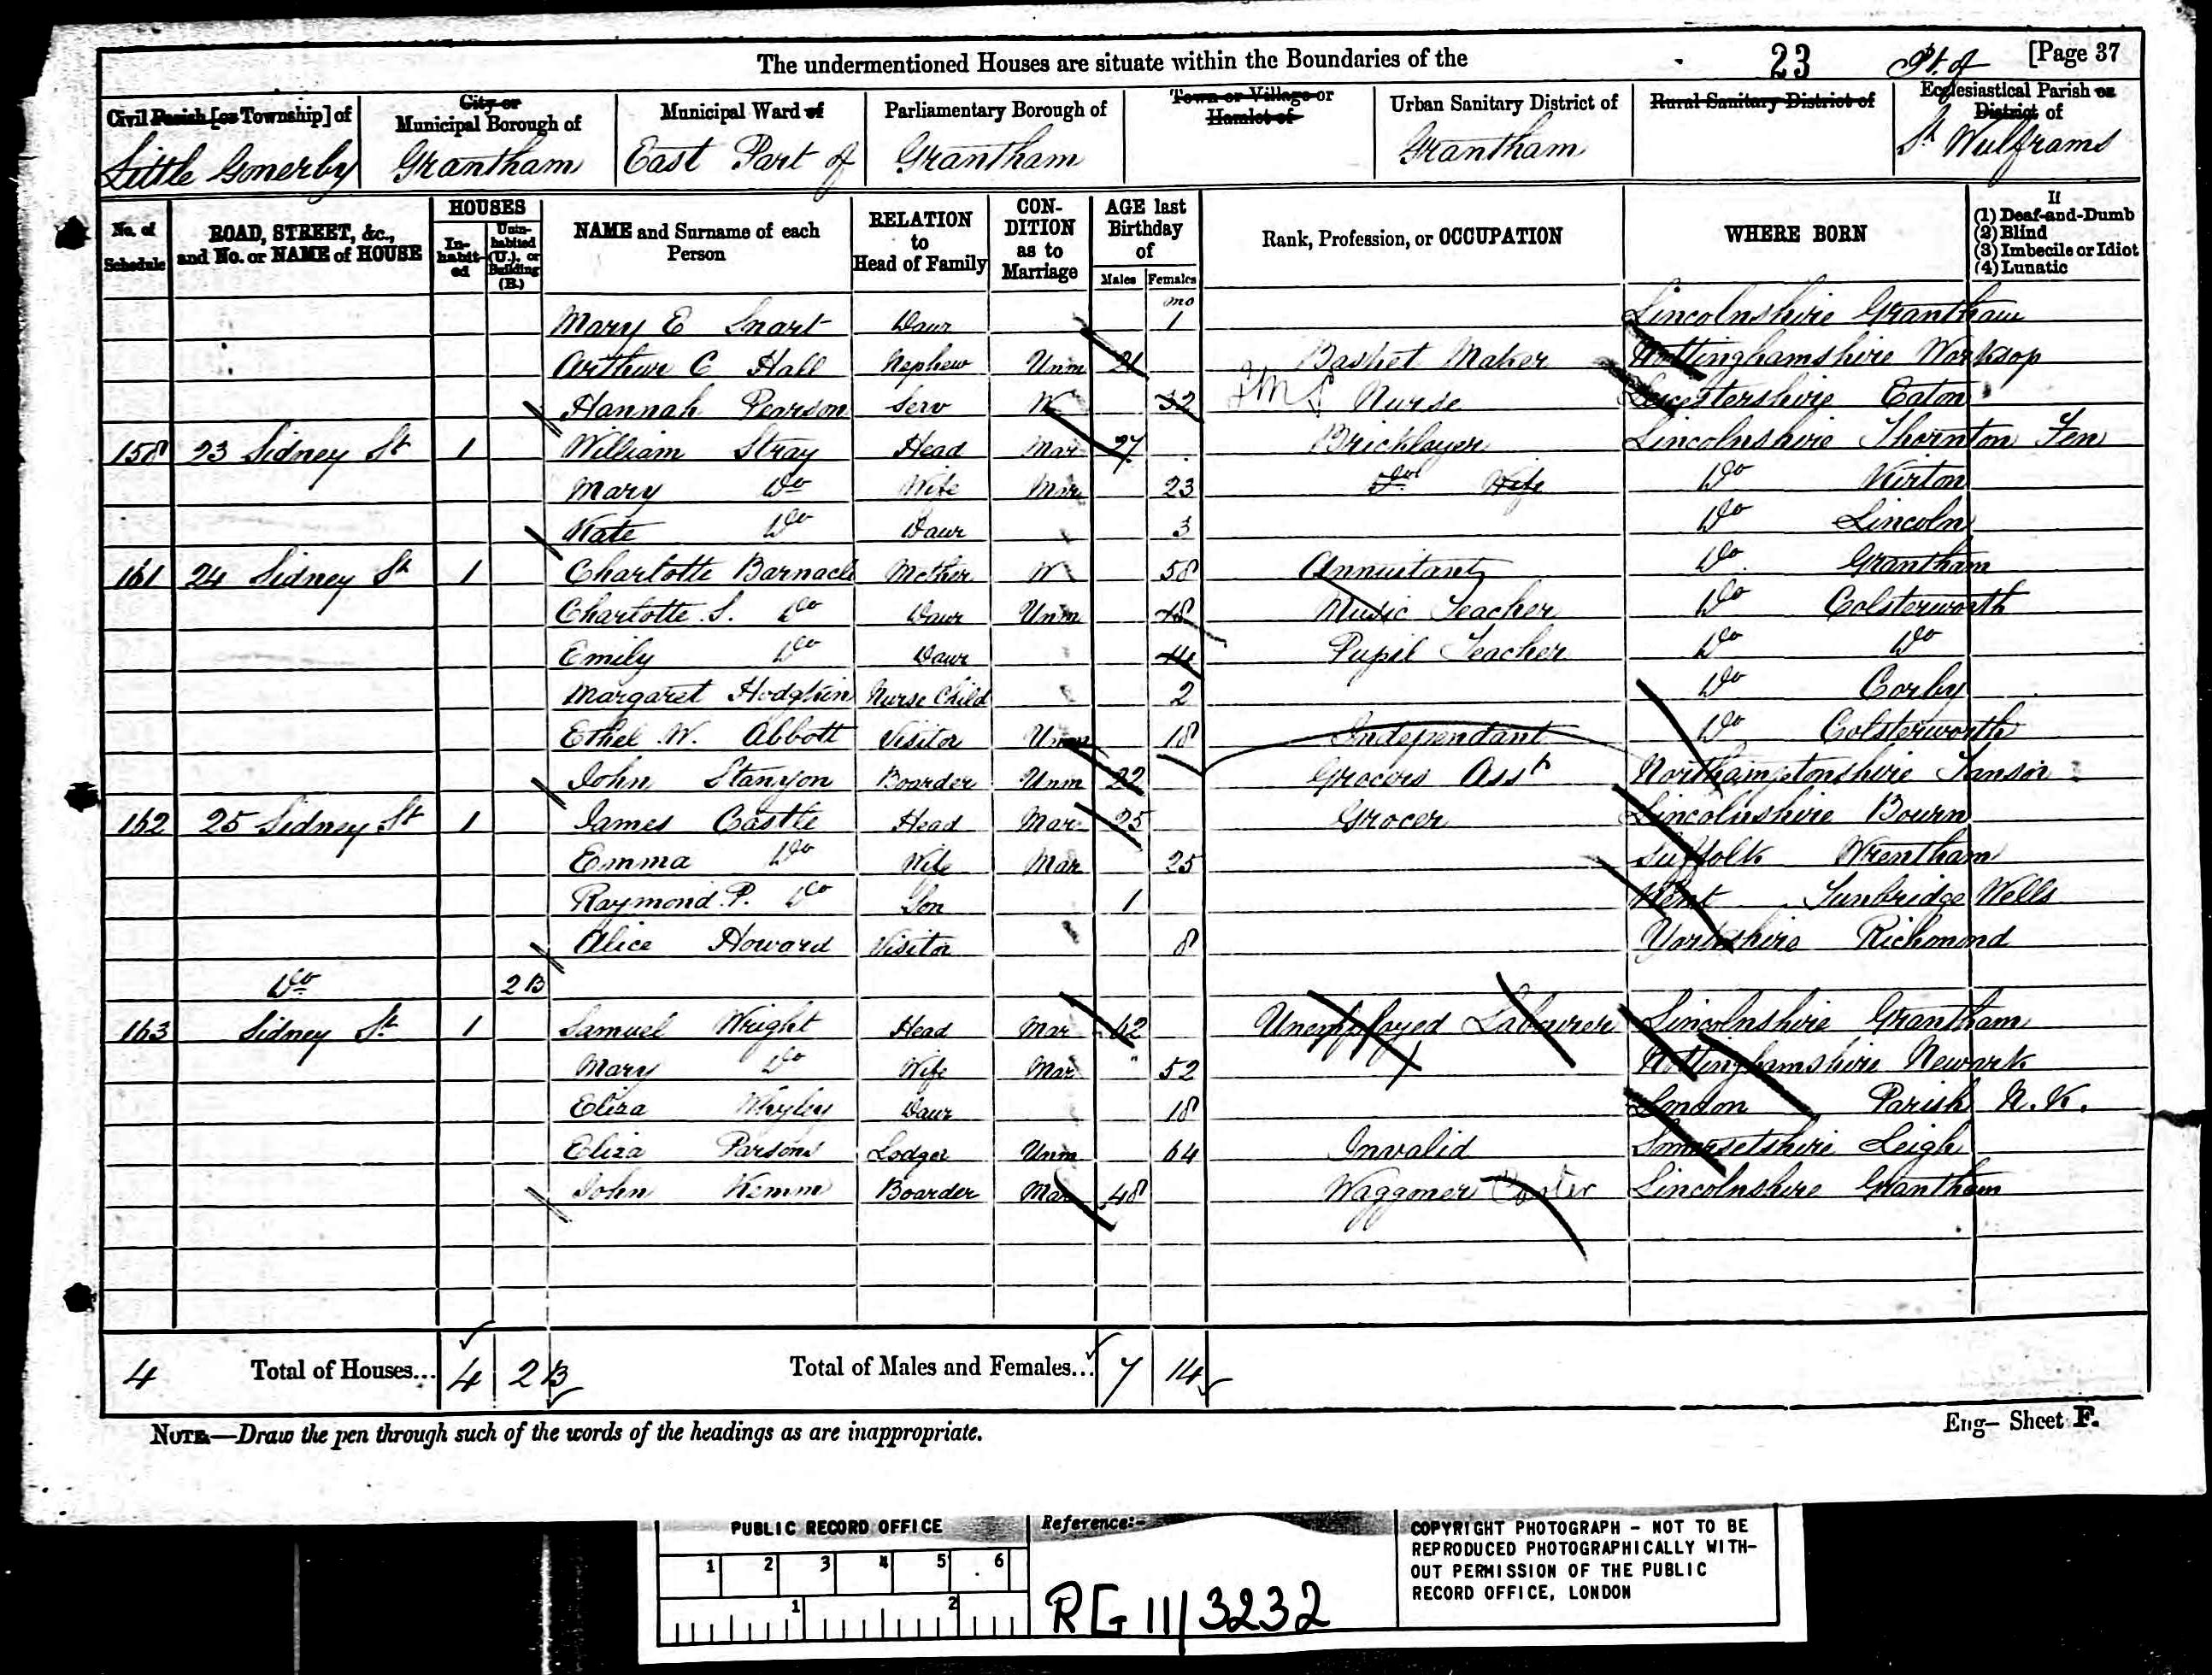 The undermentioned Houses are situate within the Boundaries of the 23 Pt. of [Page 37
Civil Parish [or Township] of City or Municipal Borough of Municipal Ward of Parliamentary Borough of Town or Village or Hamlet of Urban Sanitary District of Rural Sanitary District of Ecclesiastical Parish or District of
Little Gonerby Grantham East Part of Grantham Grantham St Wulframs
No. of Schedule ROAD, STREET, &c., and No. or NAME of HOUSE HOUSES In-habit-ed Unin-habited (U.), or Building (B.) NAME and Surname of each Person RELATION to Head of Family CON-DITION as to Marriage AGE last Birthday of Males Females Rank, Profession, or OCCUPATION WHERE BORN If (1) Deaf-and-Dumb (2) Blind (3) Imbecile or Idiot (4) Lunatic
Mary E Snart Daur 1 mo Lincolnshire Grantham
Arthur C Hall Nephew Unm 21 Basket Maker Nottinghamshire Worksop
Hannah Pearson Serv W 32 Nurse Leicestershire Eaton
158 23 Sidney St 1 William Stray Head Mar 27 Bricklayer Lincolnshire Thornton Fen
Mary Do Wife Mar 23 Do Wife Do Kirton
Kate Do Daur 3 Do Lincoln
161 24 Sidney St 1 Charlotte Barnacle Mother W 58 Annuitant Do Grantham
Charlotte S. Do Daur Unm 18 Music Teacher Do Colsterworth
Emily Do Daur 14 Pupil Teacher Do Do
Margaret Hodgkin Nurse Child 2 Do Corby
Ethel W. Abbott Visitor Unm 18 Independant Do Colsterworth
John Stanyon Boarder Unm 22 Grocers Asst Northamptonshire Tansor
162 25 Sidney St 1 James Castle Head Mar 25 Grocer Lincolnshire Bourn
Emma Do Wife Mar 25 Suffolk Wrentham
Raymond P. Do Son 1 Kent Tunbridge Wells
Alice Howard Visitor 8 Yorkshire Richmond
Do 2 B
163 Sidney St 1 Samuel Wright Head Mar 62 Unemployed Labourer Lincolnshire Grantham
Mary Do Wife Mar " 52 Nottinghamshire Newark
Eliza Whyley Daur 18 London Parish N.K.
Eliza Parsons Lodger Unm 64 Invalid Somersetshire Leigh
John Kemm Boarder Mar 48 Waggoner Carter Lincolnshire Grantham
4 Total of Houses... 4 2 B Total of Males and Females... 7 14
NOTE.—Draw the pen through such of the words of the headings as are inappropriate.
Eng— Sheet F.
PUBLIC RECORD OFFICE
1 2 3 4 5 6
1 2
Reference:-
RG 11/3232
COPYRIGHT PHOTOGRAPH – NOT TO BE
REPRODUCED PHOTOGRAPHICALLY WITH-
OUT PERMISSION OF THE PUBLIC
RECORD OFFICE, LONDON